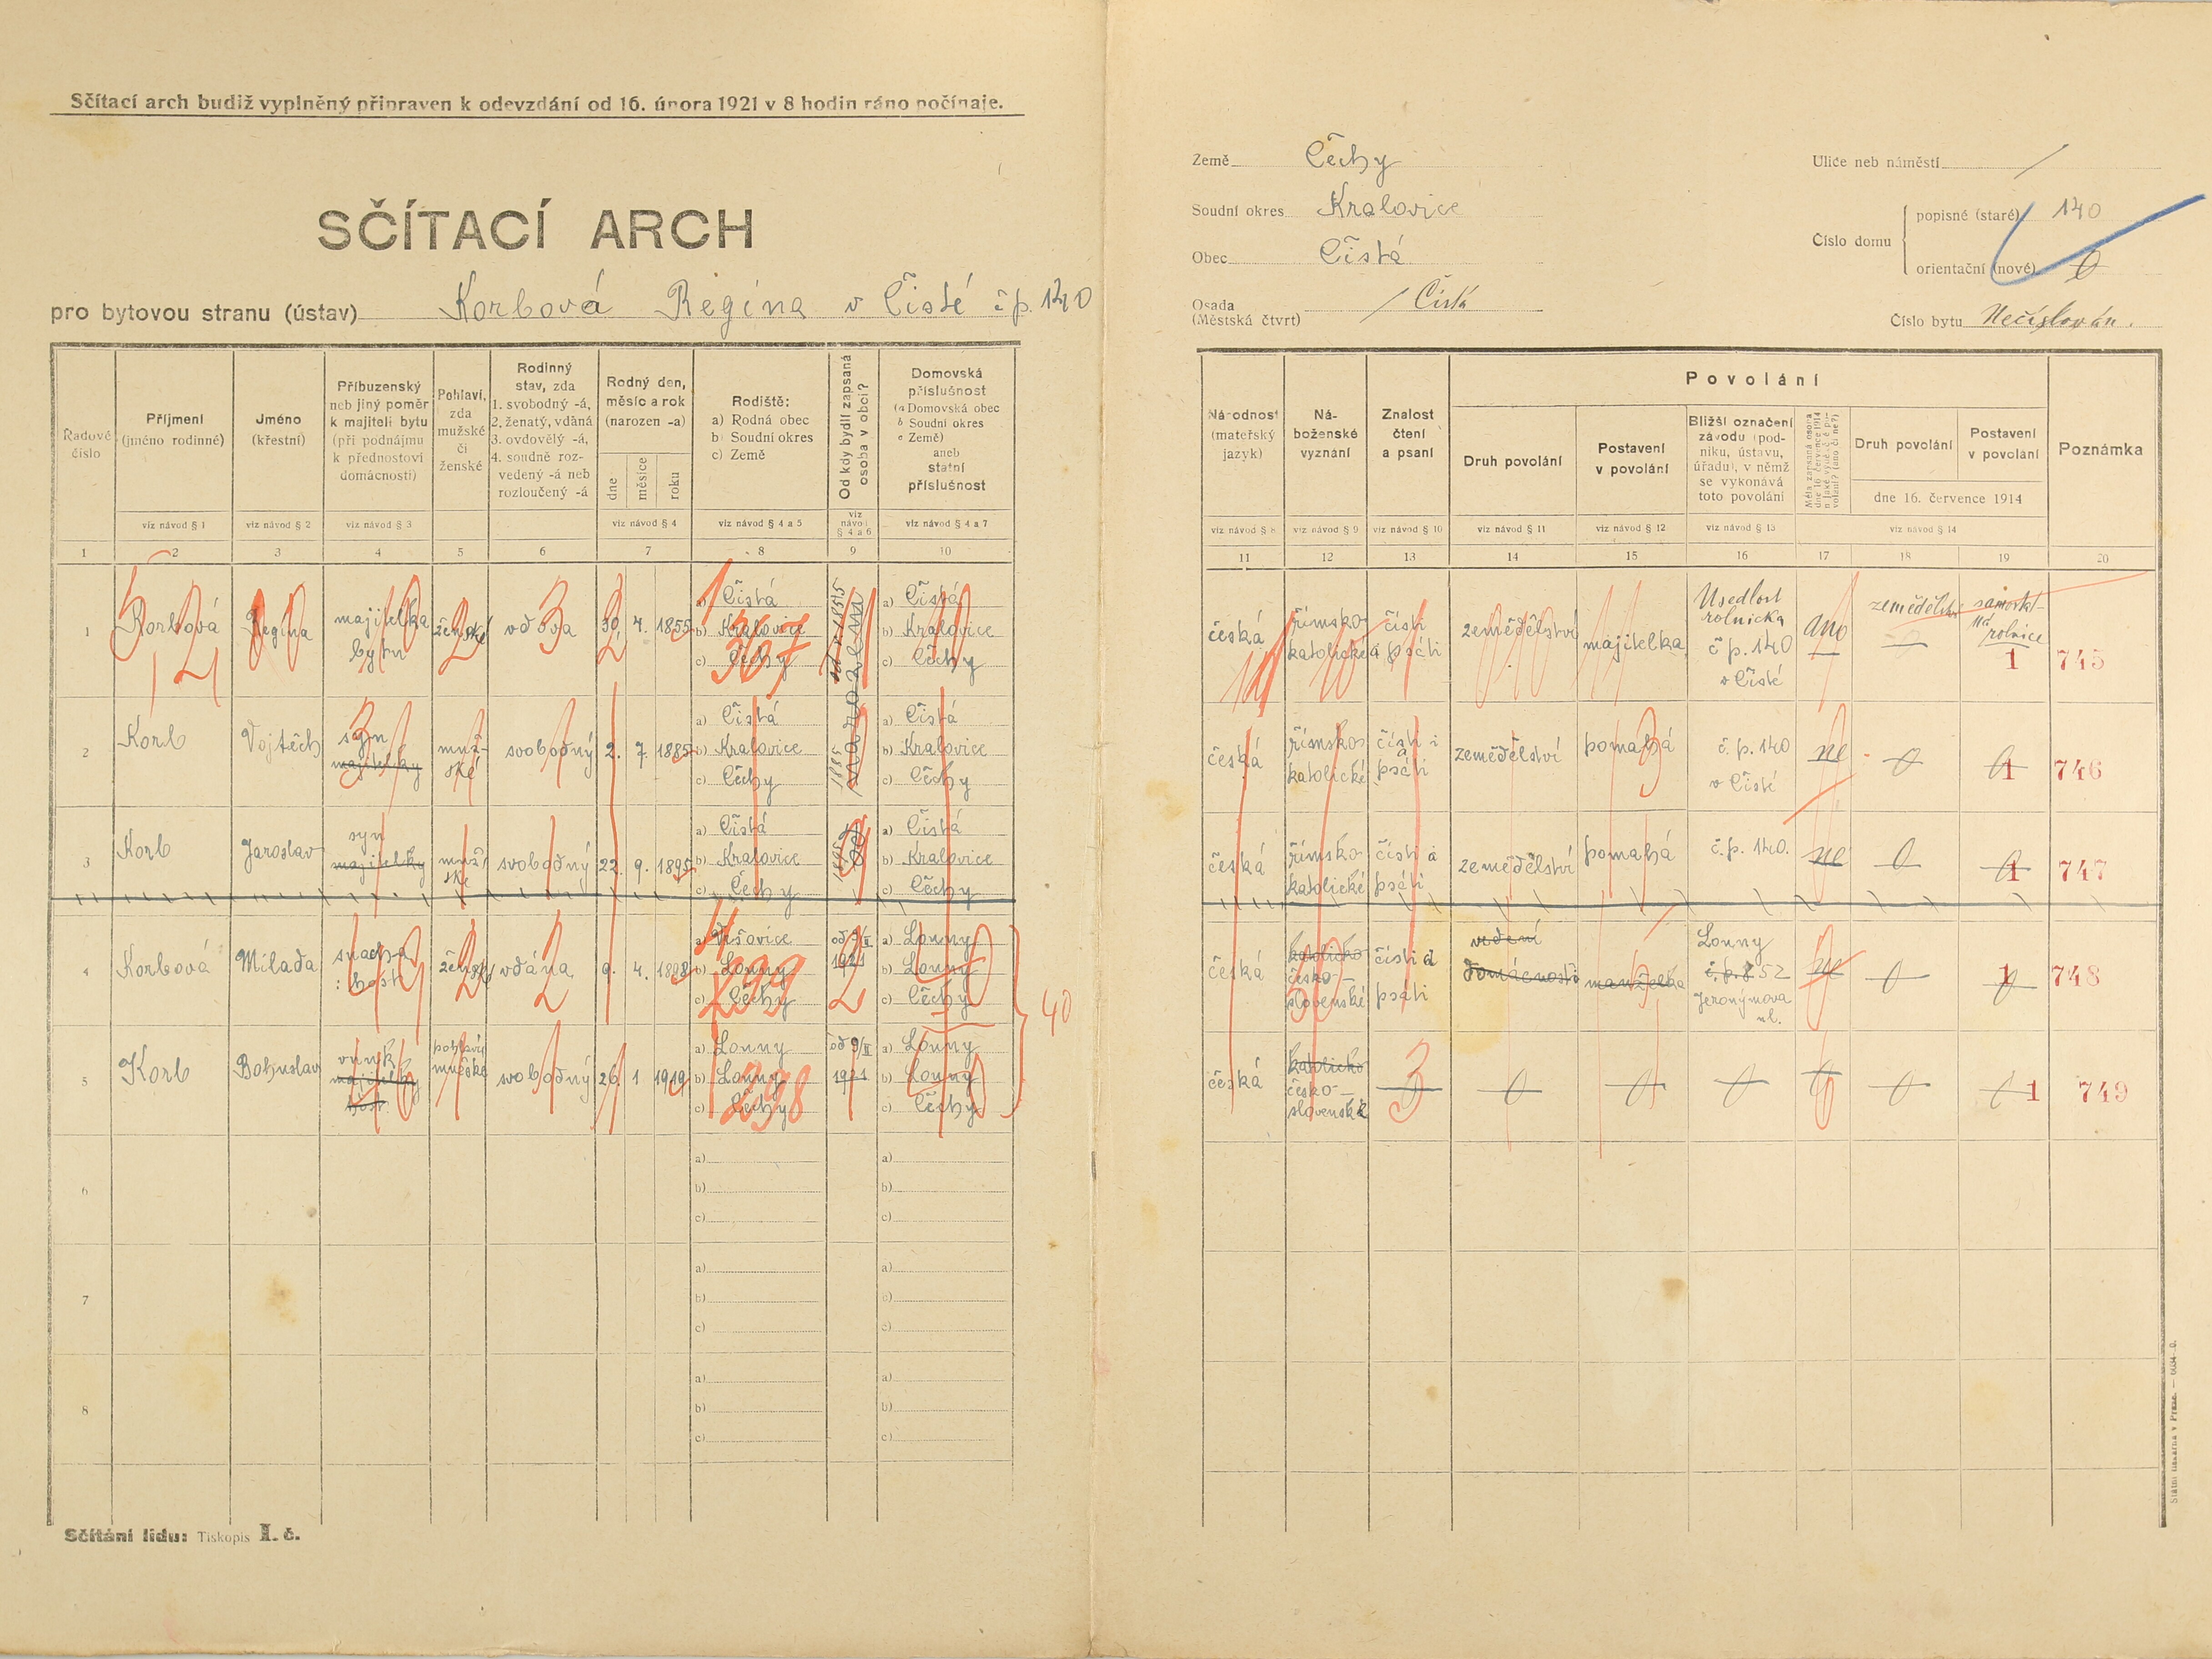 Sčítací arch budiž vyplněný připraven k odevzdání od 16. února 1921 v 8 hodin ráno počínaje.
SČÍTACÍ ARCH
pro bytovou stranu (ústav) Korbová Regina v Čisté čp. 140
Země Čechy
Soudní okres Kralovice
Obec Čistá
Osada (Městská čtvrt) / Čistá
Ulice neb náměstí /
Číslo domu
popisné (staré) 140
orientační (nové) 0
Číslo bytu Nečíslován.
Řadové číslo
Příjmení (jméno rodinné)
Jméno (křestní)
Příbuzenský neb jiný poměr k majiteli bytu (při podnájmu k přednostovi domácnosti)
Pohlaví, zda mužské či ženské
Rodinný stav, zda 1. svobodný -á, 2. ženatý, vdaná 3. ovdovělý -á, 4. soudně rozvedený -á neb rozloučený -á
Rodný den, měsíc a rok (narozen -a)
dne měsíce roku
Rodiště: a) Rodná obec b) Soudní okres c) Země
Od kdy bydlí zapsaná osoba v obci?
Domovská příslušnost (a Domovská obec b Soudní okres c Země) aneb státní příslušnost
Národnost (mateřský jazyk)
Náboženské vyznání
Znalost čtení a psaní
Povolání
Druh povolání
Postavení v povolání
Bližší označení závodu (podniku, ústavu, úřadu), v němž se vykonává toto povolání
Druh povolání
Postavení v povolání
dne 16. července 1914
Poznámka
viz návod § 1 viz návod § 2 viz návod § 3 viz návod § 4 viz návod § 4 a 5 viz návod § 4 a 6 viz návod § 4 a 7 viz návod § 8 viz návod § 9 viz návod § 10 viz návod § 11 viz návod § 12 viz návod § 13 viz návod § 14
1 2 3 4 5 6 7 8 9 10 11 12 13 14 15 16 17 18 19 20
1 Korbová Regina majitelka bytu ženské vdova 30 4. 1855
a) Čistá b) Kralovice c) Čechy
a) Čistá b) Kralovice c) Čechy
česká římsko katolické čísti a psáti zemědělství majitelka Usedlost rolnická č p. 140 v Čisté ano zemědělství rolnice 1 745
2 Korb Vojtěch syn majitelky mužské svobodný 2. 7. 1885
a) Čistá b) Kralovice c) Čechy
1885
a) Čistá b) Kralovice c) Čechy
česká římsko katolické čísti i psáti zemědělství pomahá č. p. 140 v Čisté ne 0 0 1 746
3 Korb Jaroslav syn majitelky mužské svobodný 22. 9. 1895
a) Čistá b) Kralovice c) Čechy
1895
a) Čistá b) Kralovice c) Čechy
česká římsko katolické čísti a psáti zemědělství pomahá č. p. 140. ne 0 0 1 747
4 Korbová Milada snacha host ženské vdána 9. 4. 1898
a) b) Louny c) Čechy
od 9/II 1921
a) Louny b) Louny c) Čechy
česká katolické česko-slovenské čísti a psáti vedení domácnosti manželka Louny č. p. 852 Jeronýmova ul. ne 0 0 1 748
40
5 Korb Bohuslav vnuk majitelky host pohlaví mužské svobodný 26. 1 1919
a) Louny b) Louny c) Čechy
298
od 9/II 1921
a) Louny b) Louny c) Čechy
česká katolické česko-slovenské 0 0 0 0 0 1 749
6
a) b) c)
a) b) c)
7
a) b) c)
a) b) c)
8
a) b) c)
a) b) c)
Sčítání lidu: Tiskopis I. č.
Státní tiskárna v Praze.